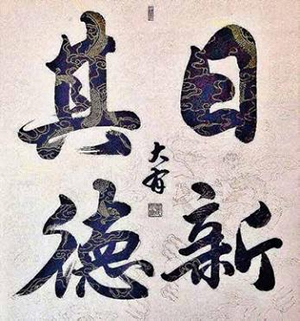 日新
其德
大有